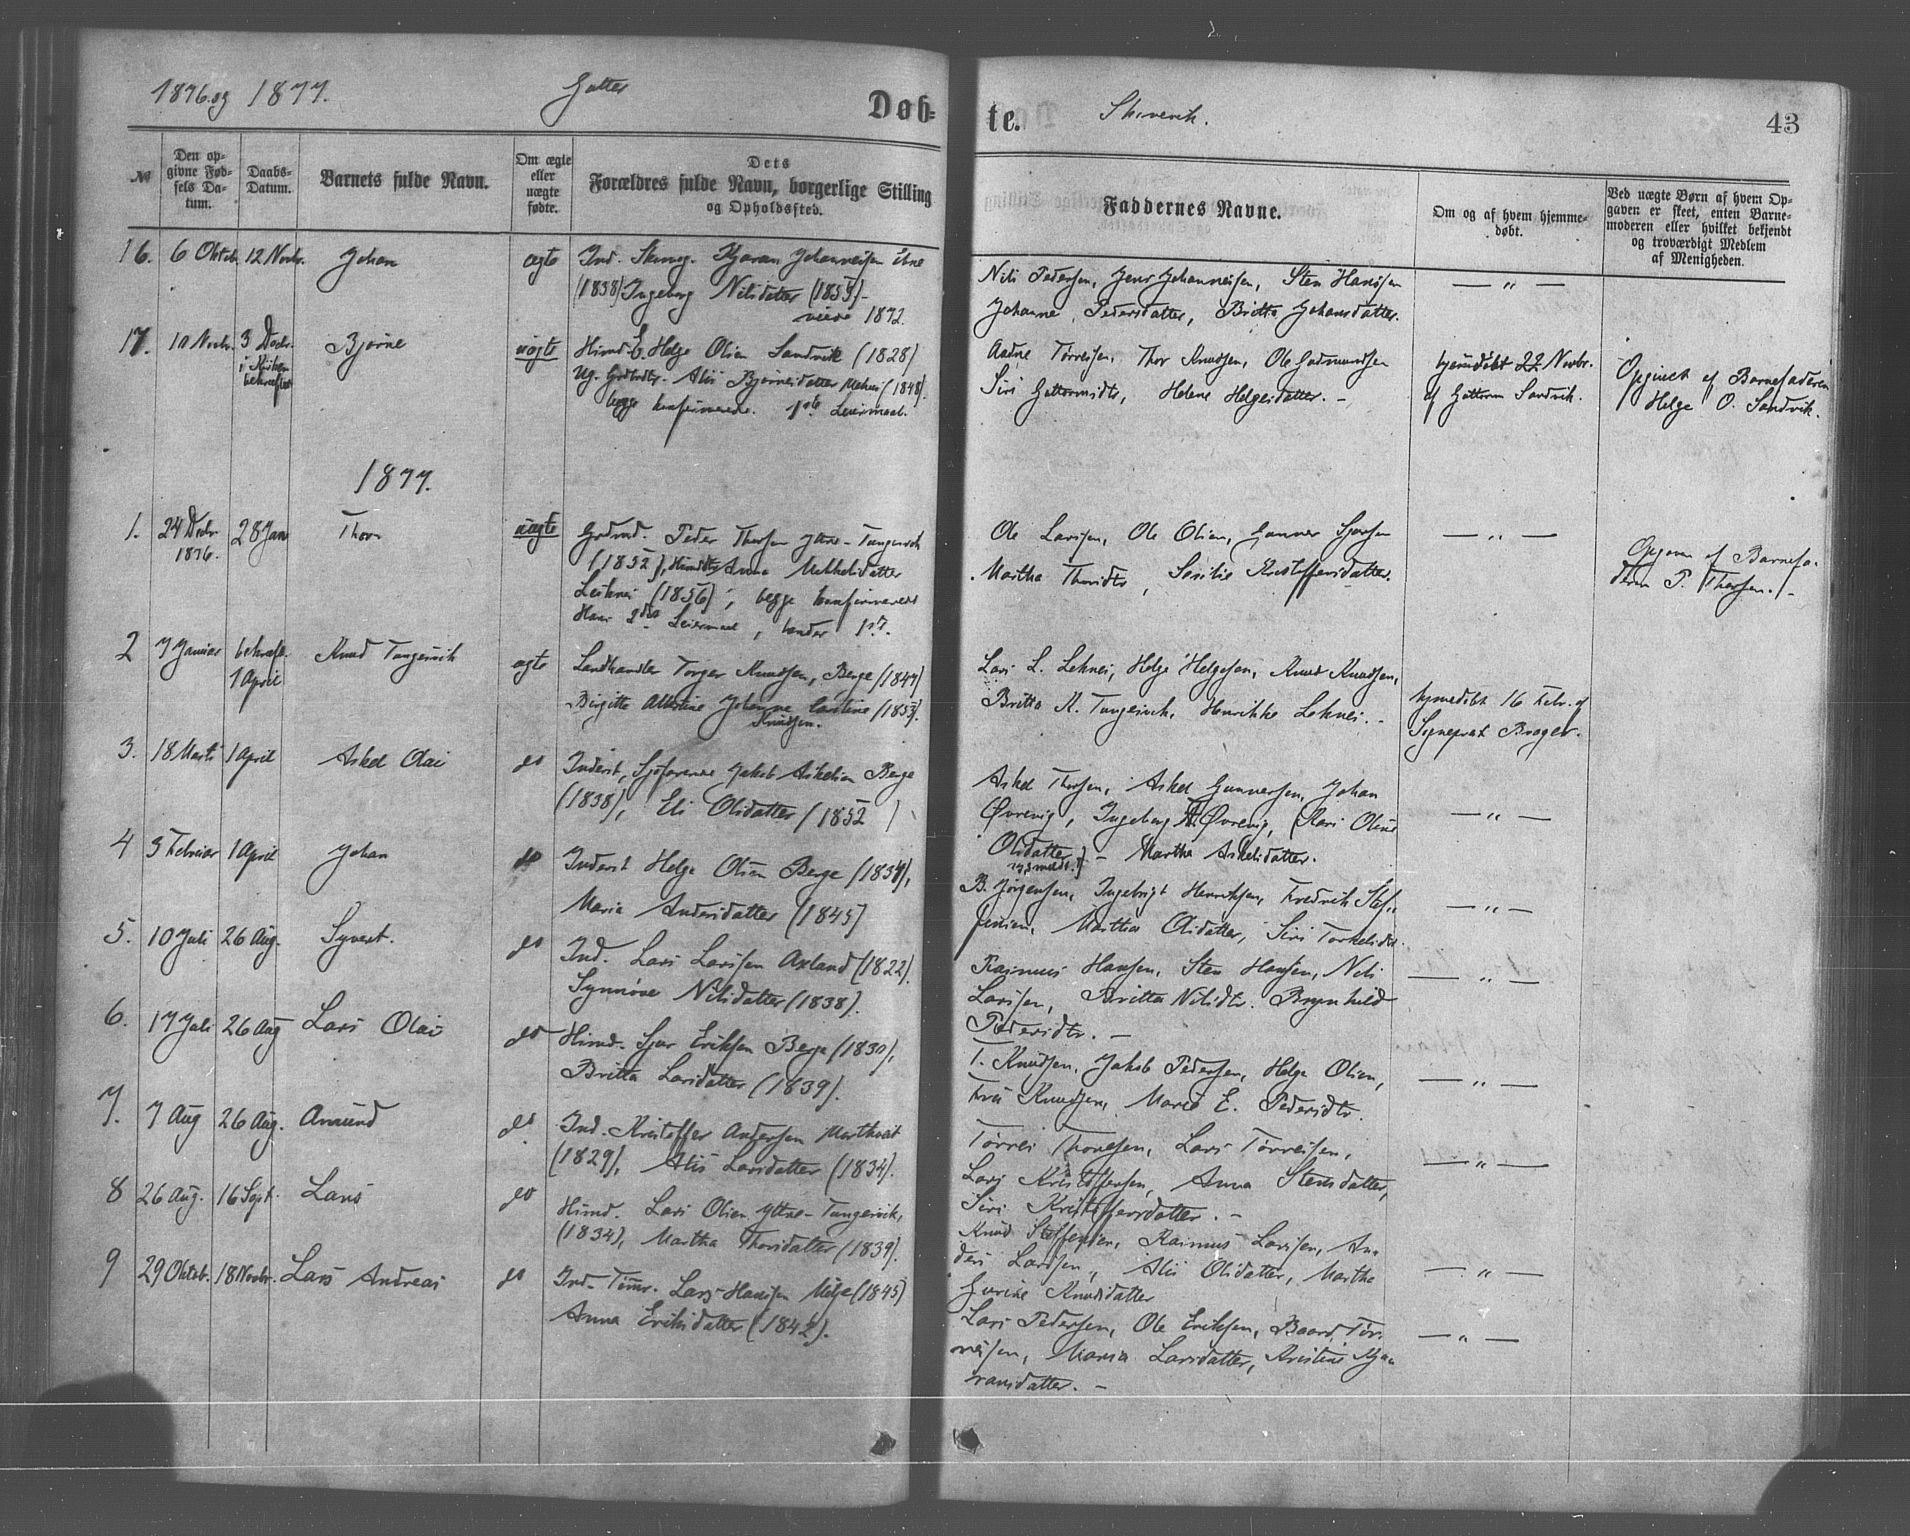 1876 og 1877.
Gutter
Døb=
te.
43
№
Den op=
givne Fød=
sels Da=
tum.
Daabs=
Datum.
Barnets fulde Navn.
Om ægte
eller
uægte
fødte.
Dets
Forældres fulde Navn, borgerlige Stilling
og Opholdssted.
Faddernes Navne.
Om og af hvem hjemme=
døbt.
Ved uægte Børn af hvem Op=
gaven er skeet, enten Barne=
moderen eller hvilket bekjendt
og troværdigt Medlem
af Menigheden.
16. 6 Oktob. 12 Novbr. Johan ægte Ind. Johannessen
(1838) Ingeborg Nilsdatter (1855) -
1872.
Nils Pedersen, Jens Johannessen, Sten Hansen — " —
Johanne Pedersdatter, Britta Johansdatter.
17. 10 Novbr. 3 Decbr. Bjørne uægte Helge Olsen Sandvik (1828)
i Kirken
bekræftet
Alis Bjørnesdatter (1848).
begge konfirmerede. 1ste Leiermaal.
Aadne Tørresen, Thor Knudsen, Ole Gudmundsen hjemdøbt 22 Novbr.
Siri Guttormsdtr, Helene Helgesdatter. - af Guttorm Sandvik.
Opgivet af Barnefaderen
Helge O. Sandvik.
1877.
1. 24 Decbr 28 Jan Thor uægte Peder Thorsen Ytre-Tungesvik
1876.
(1852), Anna Mikkelsdatter
(1856), begge konfirmerede
Hans 2det Leiermaal, hendes 1ste.
Ole Larsen, Ole Olsen, Gunnar Sjursen — " —
Martha Thorsdtr, Sesilie Kristoffersdatter.
Opgaven af Barnefa-
deren P. Thorsen. -
2 7 Januar bekræft. Knud Tungesvik ægte Landhandler Torger Knudsen, Berge (1847)
1 April
Birgitte Johanne Carstine (1853).
Knudsen.
Lars L. Leknes, Helge Helgesen, Knud Knudsen,
Britta K. Tungesvik, Henrikke Leknes. -
hjemedøbt 16 Febr. af
Sogneprest Brager.
3. 18 Marts 1 April Askel Olai do Inderst, Sjøfarende Jakob Askelsen Berge
(1838), Eli Olsdatter (1852)
Askel Thorsen, Askel Gunnarsen, Johan
Øvrevig, Ingeborg Øvrevig, (Kari Oline — " —
Olsdatter) - Martha Askelsdatter.
4 3 Februar 1 April Johan do Inderst Helge Olsen Berge (1834),
Maria Andersdatter (1845)
B. Jørgensen, Ingebrigt Henriksen, Fredrik Stef- — " —
fensen, Martha Olsdatter, Siri Torkelsdtr.
5. 10 Juli 26 Aug. Syvert. do Ind. Lars Larsen Axland (1822).
Synnøve Nilsdatter (1838).
Rasmus Hansen, Sten Hansen, Nils — " —
Larsen, Britta Nilsdtr. Brynhild
Pedersdtr. -
6. 17 Juli 26 Aug Lars Olai do Husmd. Sjur Eriksen Berge (1830),
Britta Larsdatter (1839).
T. Knudsen, Jakob Pedersen, Helge Olsen, — " —
Fru Knudsen, Maria E. Pedersdtr.
7. 7 Aug 26 Aug. Amund do Ind. Kristoffer Andersen
(1829), Alis Larsdatter (1834).
Tørres Thoresen, Lars Tørresen, — " —
Lars Kristoffersen, Anna Stensdatter,
Siri Kristoffersdatter. -
8 26 Aug. 16 Sept. Lars do Husmd. Lars Olsen Yttre-Tungesvik,
(1834), Martha Thorsdatter (1839).
Knud Steffensen, Rasmus Larsen, An-
ders Larsen, Alis Olsdatter, Marthe — " —
Gurine Knudsdatter
9 29 Oktob. 18 Novbr. Lars Andreas do Ind. Lars Hansen Milje (1845)
Anna Eriksdatter (1842).
Lars Pedersen, Ole Eriksen, Baard Tør- — " —
resen, Maria Larsdatter, Kristine Gja-
ransdatter. -